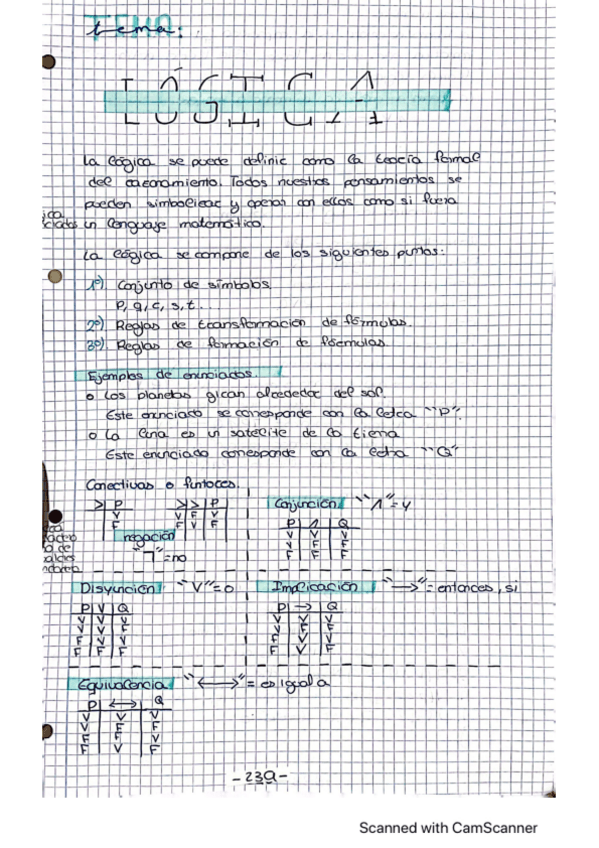 tema:
LÓGICA
La lógica se puede definir como la teoría formal
del razonamiento. Todos nuestros pensamientos se
pueden simbolizar y operar con ellos como si fuera
un lenguaje matemático.
La lógica se compone de los siguientes puntos:
1º) Conjunto de símbolos
P, q, r, s, t...
2º) Reglas de transformación de fórmulas.
3º) Reglas de formación de fórmulas.
Ejemplos de enunciados.
o Los planetas giran alrededor del sol.
Este enunciado se corresponde con la letra "P".
o La luna es un satélite de la tierra
Este enunciado corresponde con la letra "Q"
Conectivas o functores.
negación
"¬"=no
P
V
F
P
V F V
F V F
Conjunción "Λ"=y
P Λ Q
V V V
V F F
F F V
F F F
Disyunción "V"=o
P V Q
V V V
V V F
F V V
F F F
Implicación "→"=entonces, si
P → Q
V V V
V F F
F V V
F V F
Equivalencia "↔"= es igual a
P ↔ Q
V V V
V F F
F F V
F V F
-23a-
Scanned with CamScanner